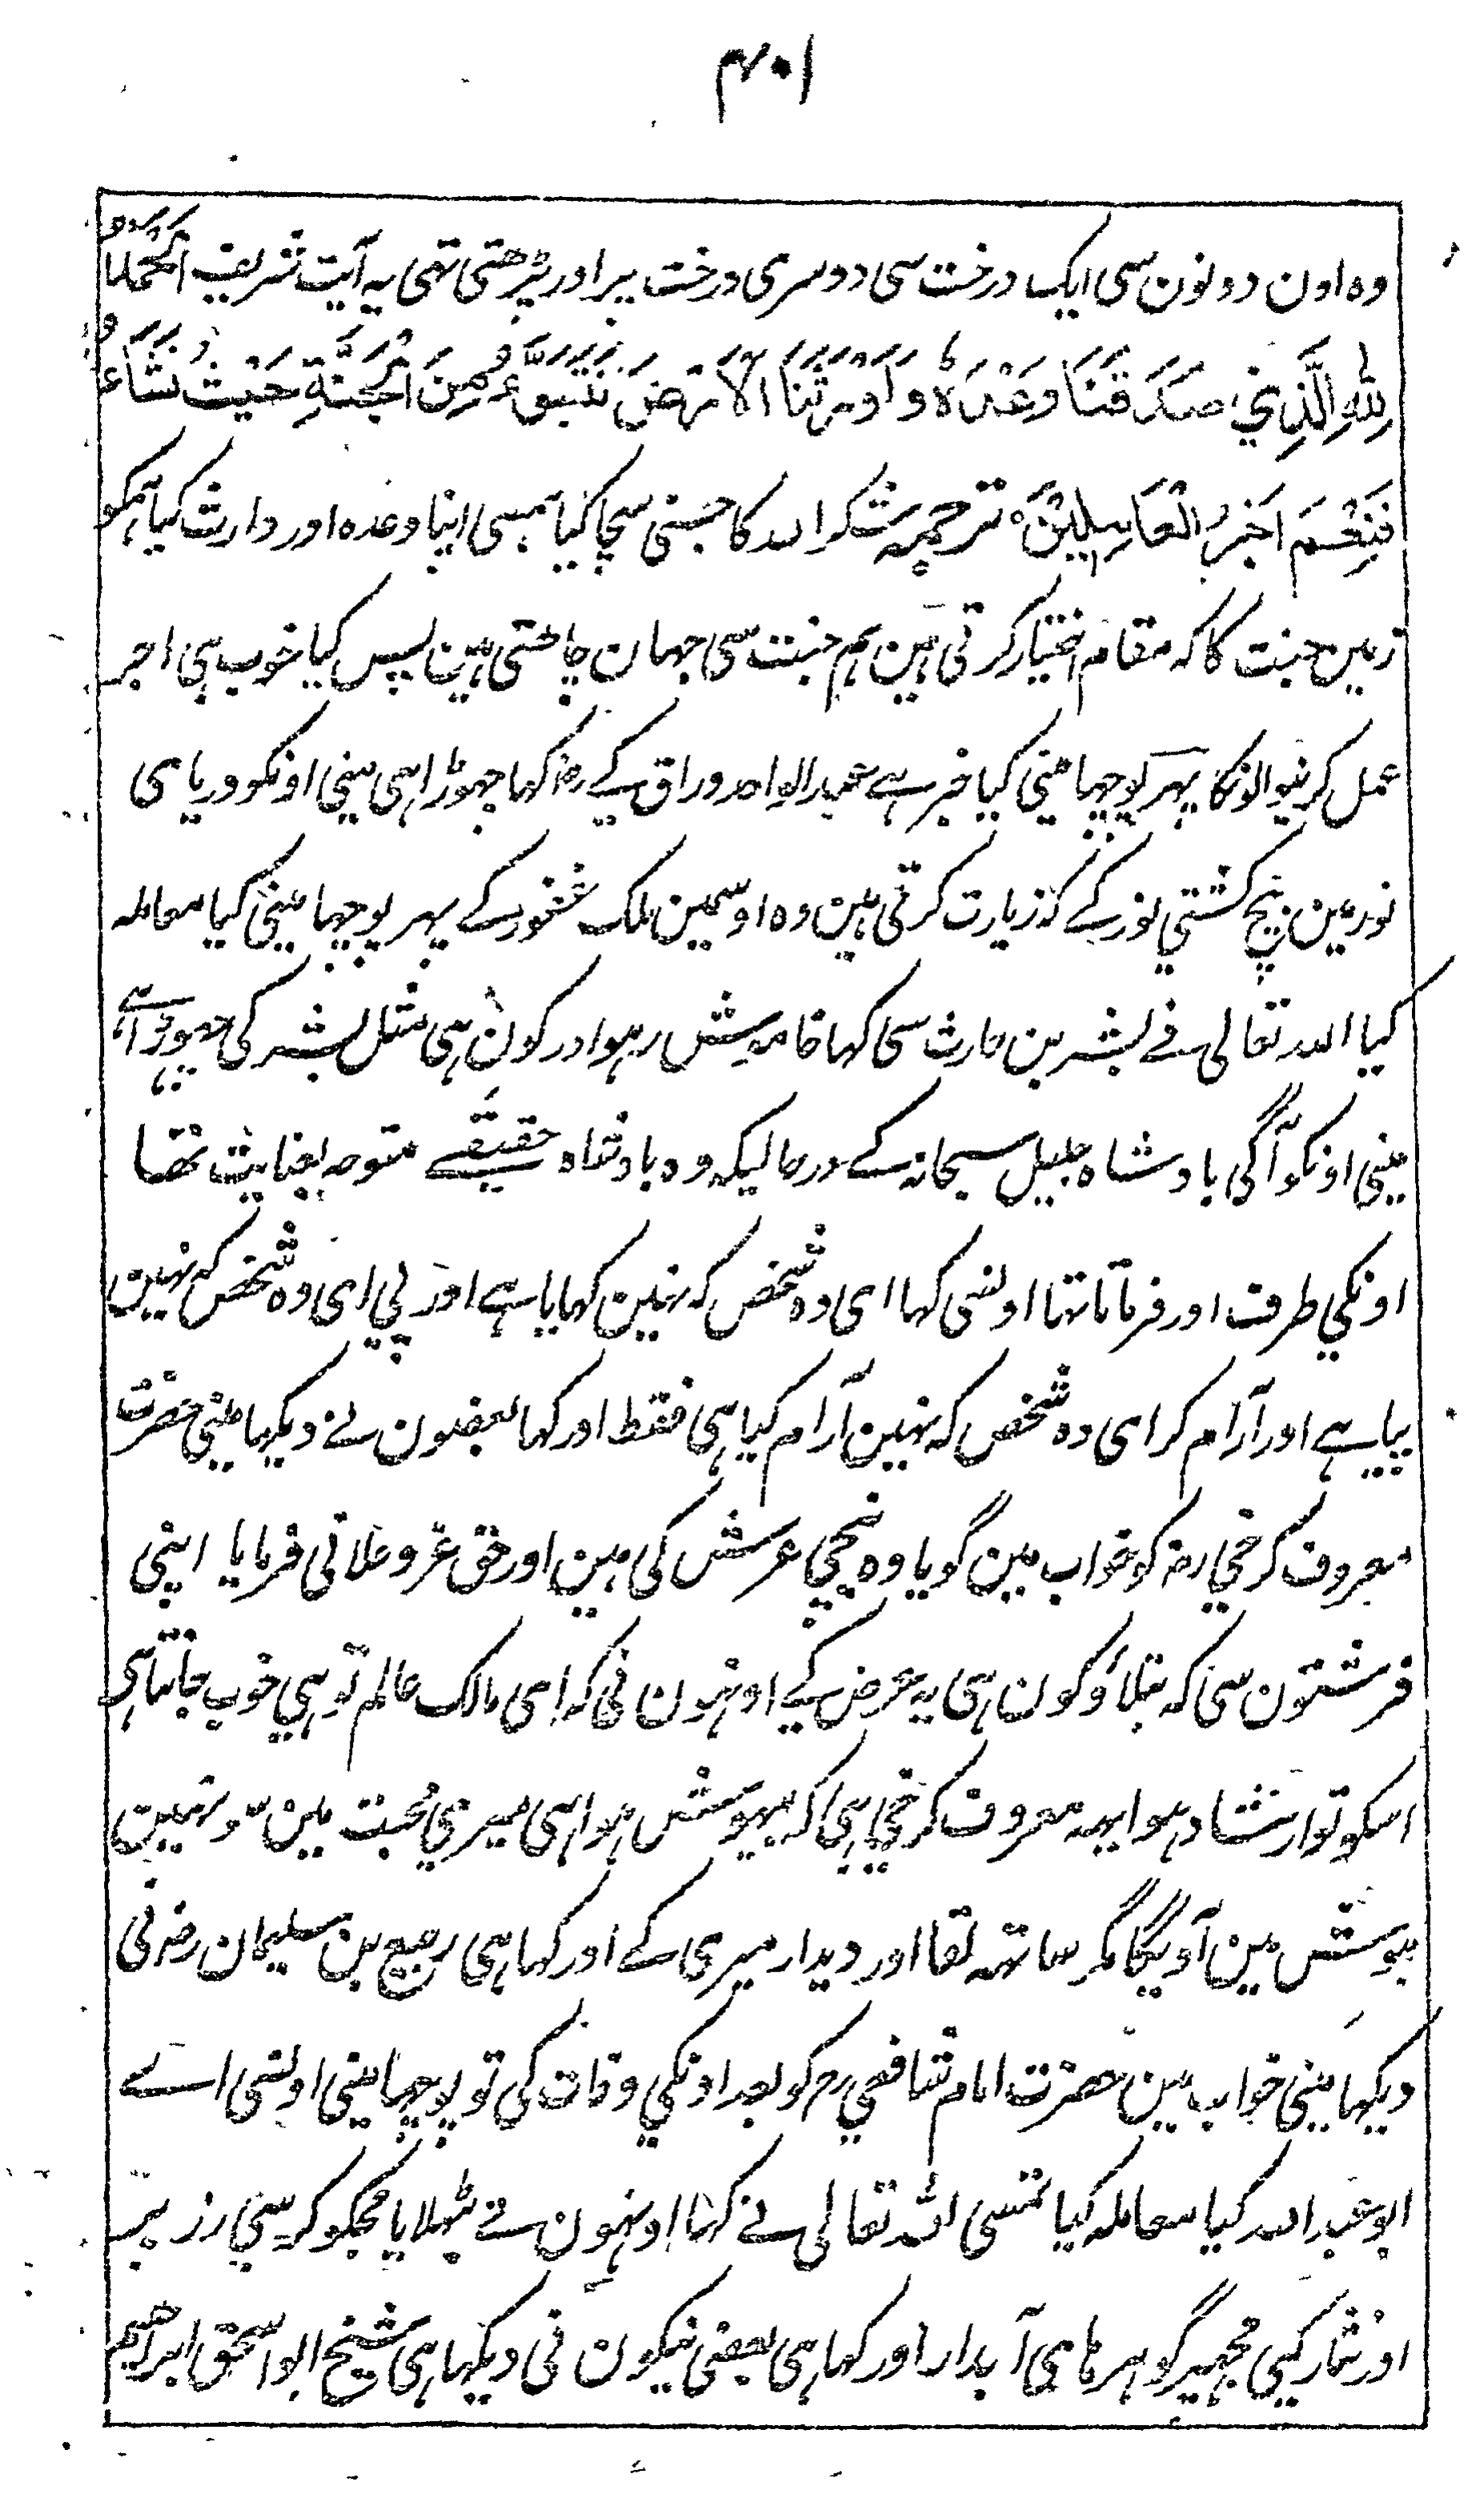 ۴۰۱
وہ اون دونون سی ایک درخت سی دوسری درخت پر اور پڑھتی تھی یہ آیت شریف اَلْحَمْدُ
لِلّٰهِ الَّذِيْ صَدَقَنَا وَعْدَهٗ وَاَوْرَثَنَا الْاَرْضَ نَتَبَوَّءُ مِنَ الْجَنَّةِ حَيْثُ نَشَآءُ
فَنِعْمَ اَجْرُ الْعَامِلِيْنَ ترجمہ شکر اللہ کا جسنی سچا کیا ہمسی اپنا وعدہ اور وارث کیا ہمکو
زمین جنت کا کہ مقام اختیار کرتی ہین ہم جنت سی جہان چاہتی ہین پس کیا خوب ہی اجر
عمل کرنیوالونکا پہر پوچہا مینی کیا خبر ہے عبدالواحد وراق کے رض کہا چہوڑا ہی مینی اونکو دریای
نور مین بیچ کشتی نور کے کہ زیارت کرتی ہین وہ اوسمین ملک غفور کے پہر پوچہا مینی کیا معاملہ
کیا اللہ تعالی نے بشر بن حارث سی کہا خاموش رہو اور کون ہی مثل بشر کی چہوڑا ہے
مینی اونکو آگی بادشاہ جلیل سبحانہ کے درحالیکہ وہ بادشاہ حقیقے متوجہ بعنایت تھا
اونکی طرف اور فرماتا تہا اونسی کہا ای وہ شخص کہ نہین کہایا ہے اور پی ای وہ شخص کہ نہین
پیا ہے اور آرام کر ای وہ شخص کہ نہین آرام کیا ہی فقط اور کہا بعضون نے دیکہا مینی حضرت
معروف کرخی رض کو خواب مین گویا وہ نیچی عرش کی ہین اور حق عز و علا نی فرمایا اپنی
فرشتون سی کہ بتلاؤ کون ہی یہ عرض کیے اونہون نی کہ ای مالک عالم تو ہی خوب جانتا ہی
اسکو تو ارشاد ہوا یہہ معروف کرخی ہی کہ بیہوش ہوا ہی میری محبت مین سو نہین
ہوش مین آویگا مگر ساتہہ لقا اور دیدار میری کے اور کہا ہی ربیع بن سلیمان رض نی
دیکہا مینی خواب مین حضرت امام شافعی رح کو بعد اونکی وفات کی تو پوچہا مینی اونسی اے
ابو عبد اللہ کیا معاملہ کیا تمسی اللہ تعالی نے کہا اونہون نے بٹہلایا مجہکو کرسی زر پر
اور نثار کیی مجہپر گوہر ہای آبدار اور کہا ہی بعضی نیکون نی دیکہا ہی شیخ ابو اسحق ابراہیم